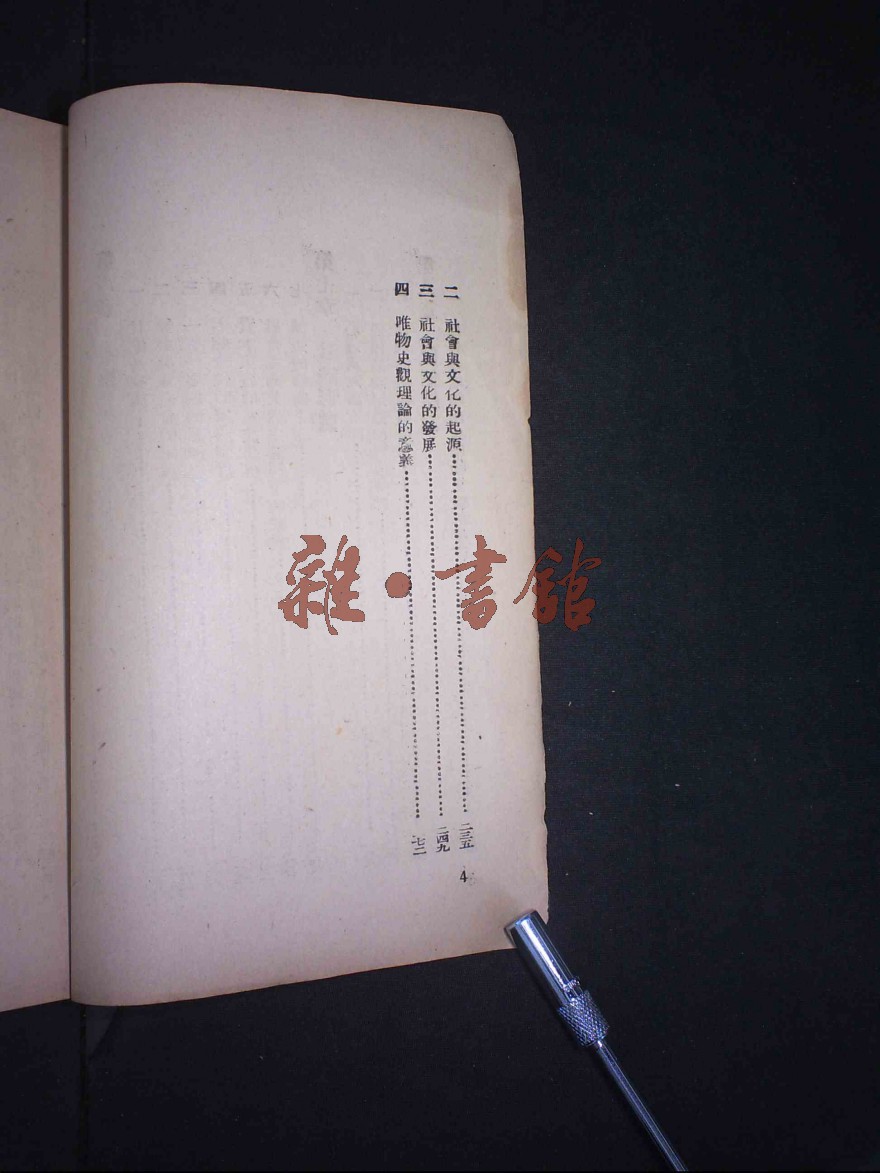 二 社會與文化的起源……二三五
三 社會與文化的發展……二四九
四 唯物史觀理論的意義……七二
4
雜·書館